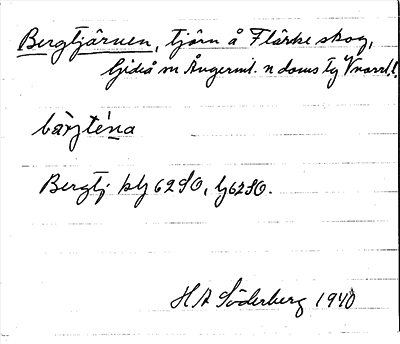 Bergtjärnen, tjärn å Flärke skog,
Gideå sn Ångerml. n doms Tg Vnorrl.l.
bàrjténa
Bergtj. blj 62 SO, lj 62 SO.
H A Söderberg 1940